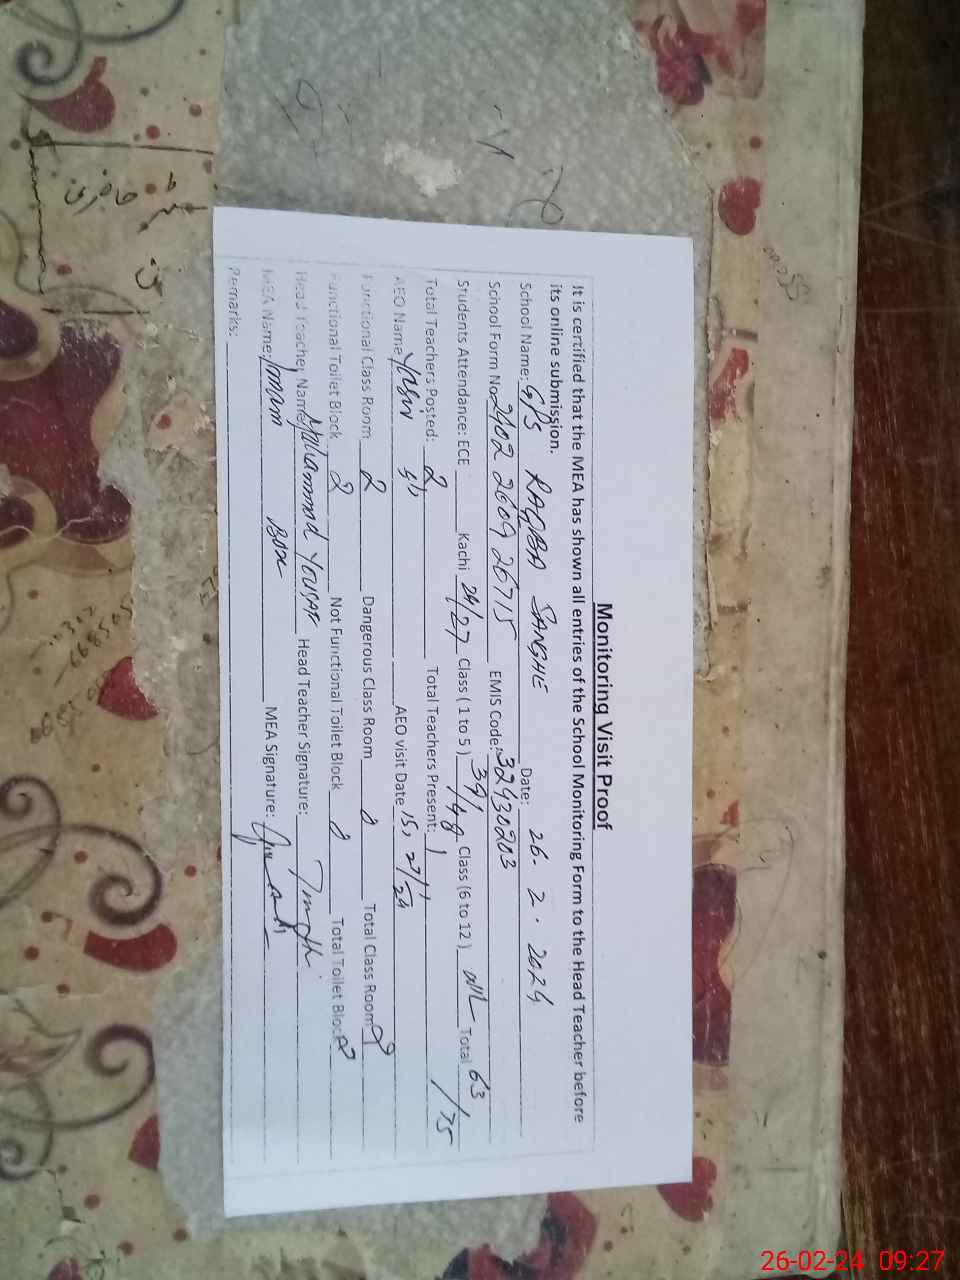 Monitoring Visit Proof
It is certified that the MEA has shown all entries of the School Monitoring Form to the Head Teacher before
its online submission.
School Name: G/S RAQBA SANGHE Date: 26. 2. 2024
School Form No: 2402 2609 26715 EMIS Code: 32430203
Students Attendance: ECE Kachi 24/27 Class (1 to 5) 39/48 Class (6 to 12) nil Total 63/75
Total Teachers Posted: 2 Total Teachers Present: 1
AEO Name Yasin AEO visit Date 15,
Functional Class Room 2 Dangerous Class Room 0 Total Class Room 2
Functional Toilet Block 2 Not Functional Toilet Block 0 Total Toilet Block 2
Head Teacher Name Muhammad Yousaf Head Teacher Signature:
MEA Name: Imam Bux MEA Signature:
Remarks:
26-02-24 09:27